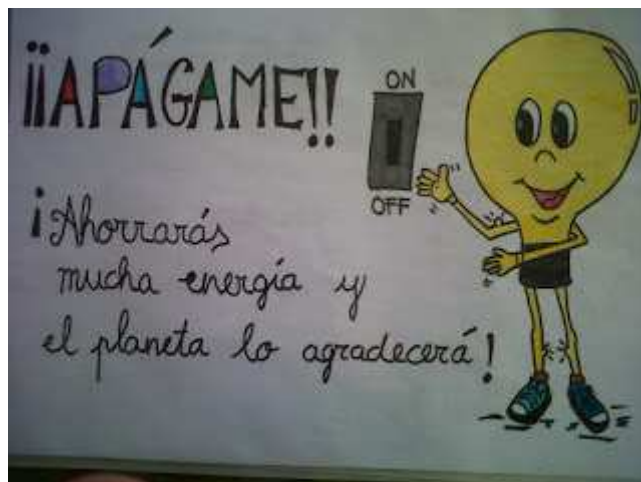 ¡¡APÁGAME!!
ON
OFF
¡Ahorrarás
mucha energía y
el planeta lo agradecerá!